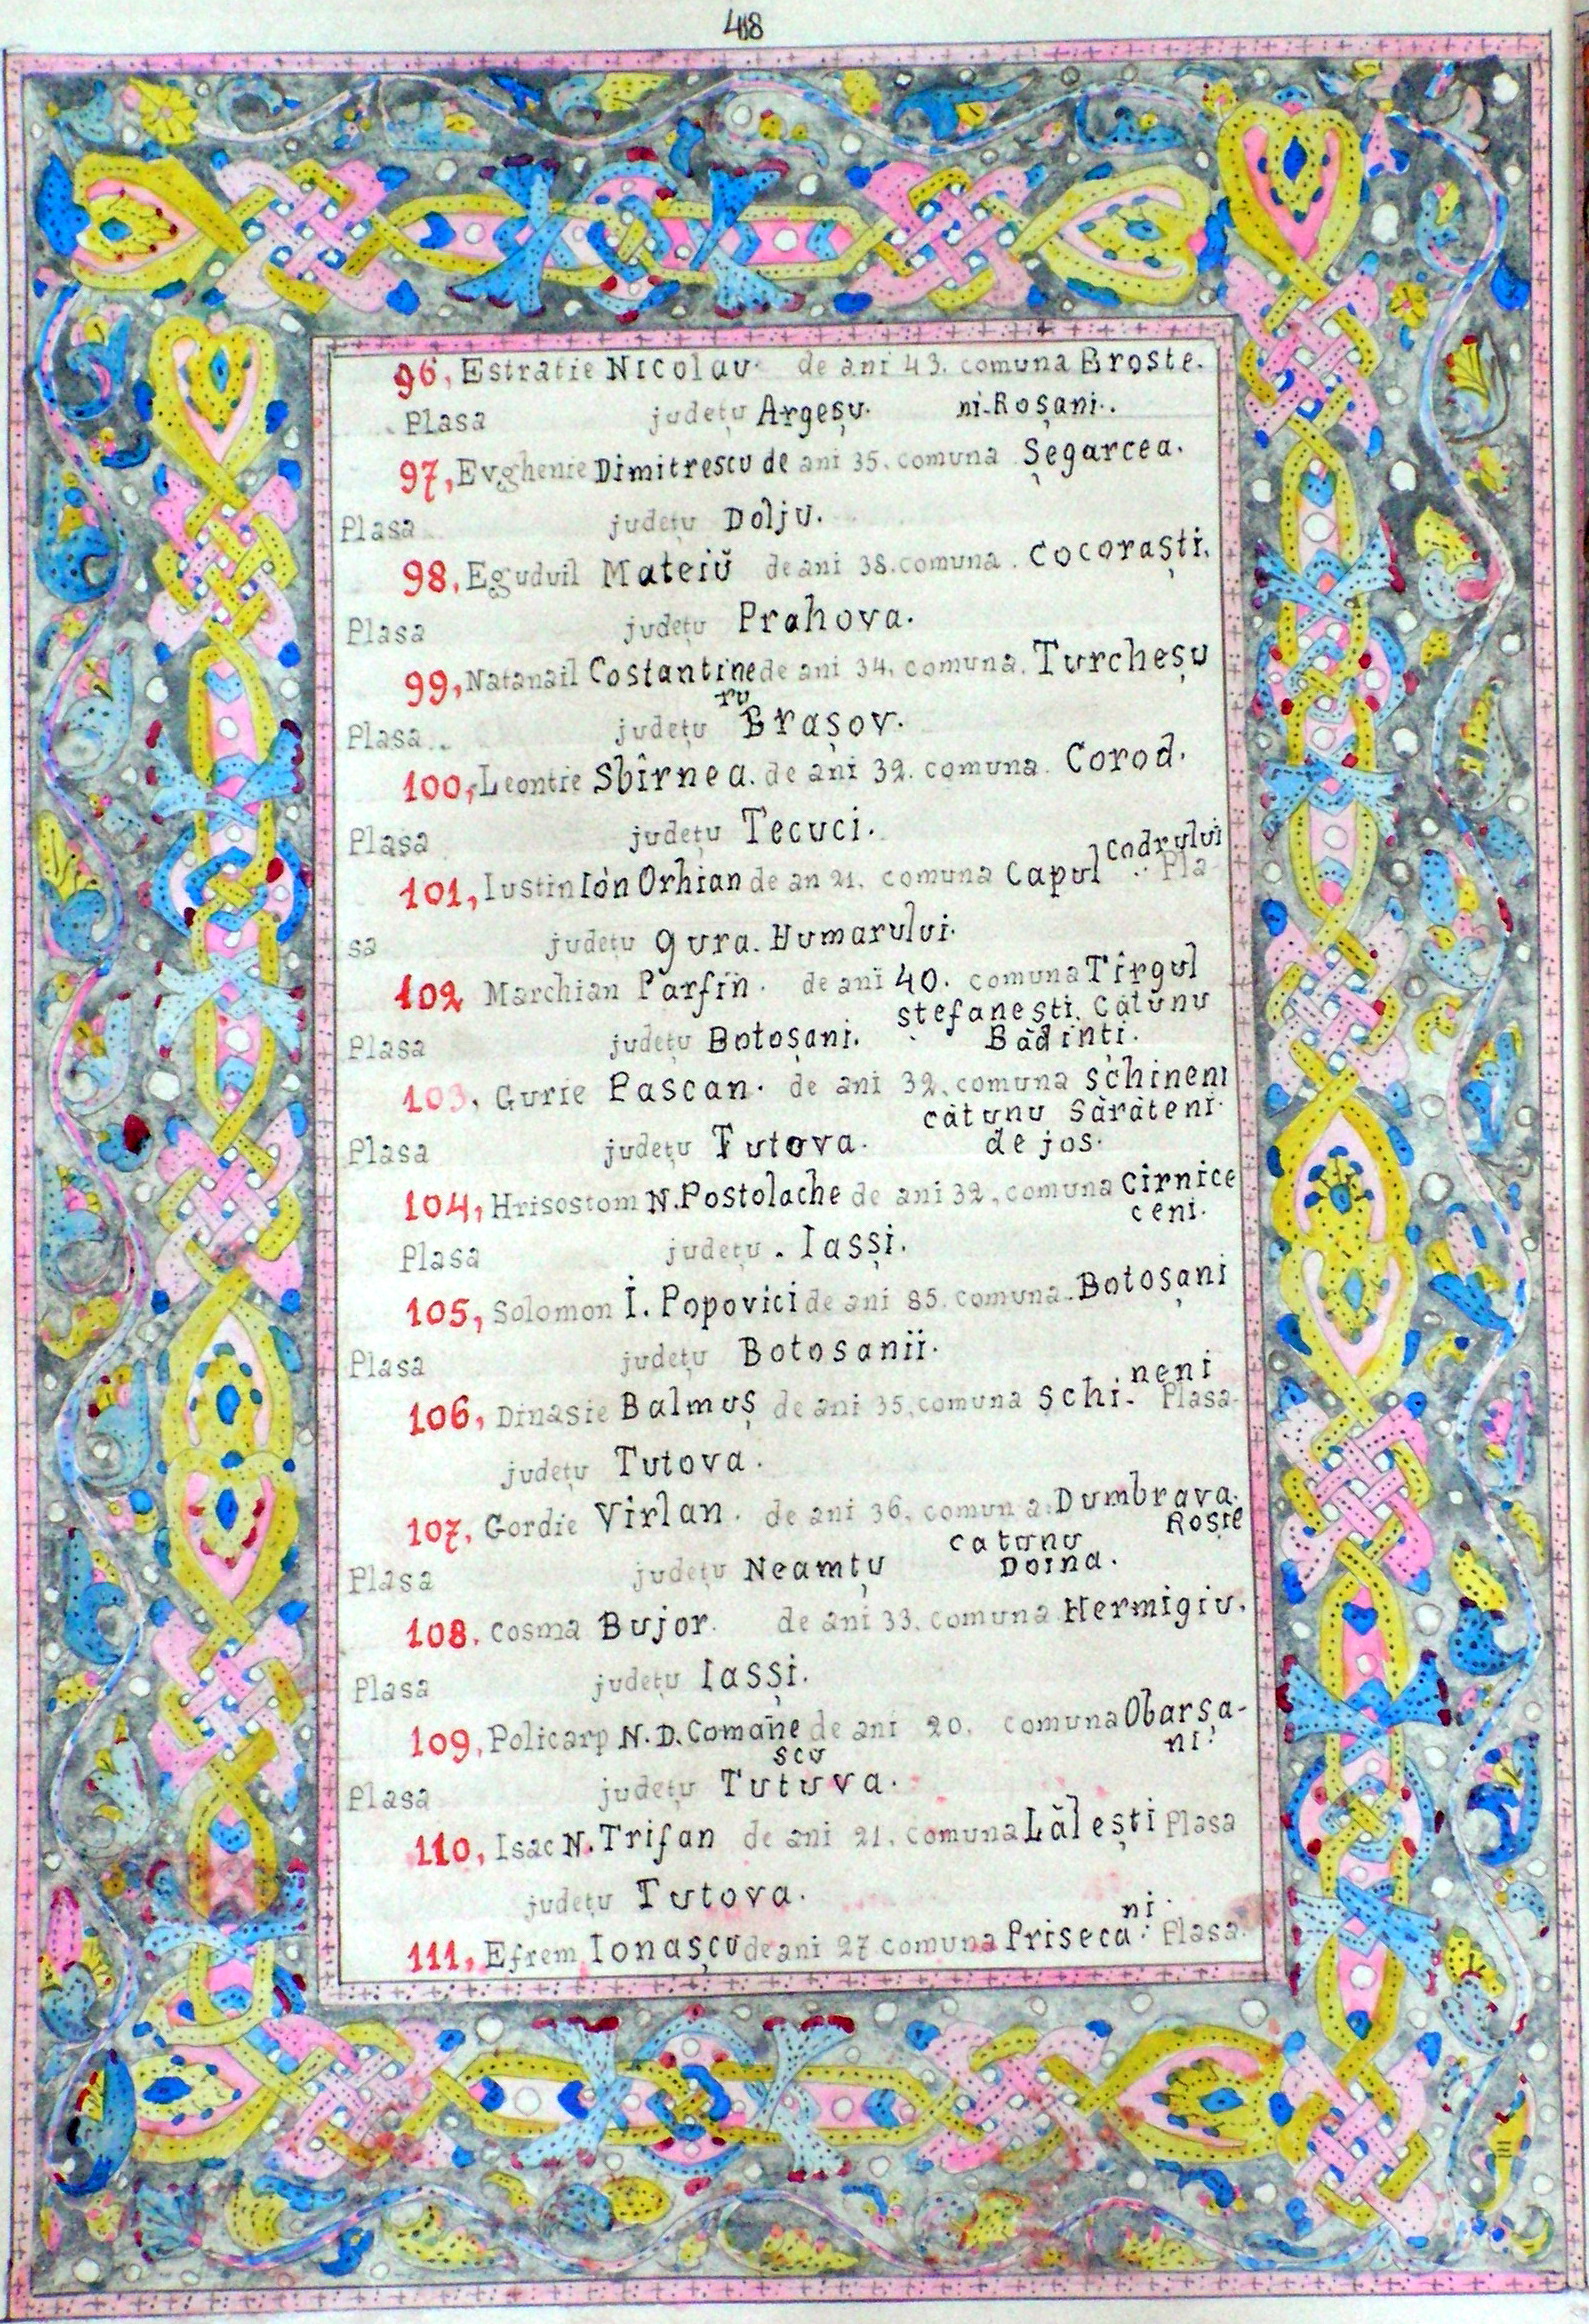 418
96, Estratie Nicolau. de ani 43. comuna Broste.
Plasa județu Argeșu. ni-Roșani.
97, Evghenie Dimitrescu de ani 35. comuna Șegarcea.
Plasa județu Dolju.
98, Eguduil Mateiŭ de ani 38. comuna. Cocoraști.
Plasa județu Prahova.
99, Natanail Costantine de ani 34, comuna. Turcheșu
ru
Plasa.. județu Brașov.
100, Leontie Sbîrnea. de ani 32. comuna. Corod.
Plasa județu Tecuci.
101, Iustin Ión Orhian de an 21. comuna Capul Codrului Pla-
sa județu gura. Humarului.
102 Marchian Parfin. de ani 40. comuna Tîrgul
stefanești. Cătunu
Plasa județu Botoșani. Bădinți.
103. Gurie Pascan. de ani 32. comuna schineni
cătunu Sărăteni.
Plasa județu Tutova. de jos.
104, Hrisostom N. Postolache de ani 32, comuna Cirnice
ceni.
Plasa județu. Iașși.
105, Solomon I. Popovici de ani 85. comuna. Botoșani
Plasa județu Botosanii.
neni
106, Dinasie Balmuș de ani 35, comuna schi- Plasa-
județu Tutova.
107, Gordie Virlan. de ani 36, comuna: Dumbrava.
catunu Roșie
Plasa județu Neamțu Doina.
108. Cosma Bujor. de ani 33. comuna Hermigiu.
Plasa județu Iașși.
109, Policarp N. D. Comane de ani 20. comuna Obarșa-
scu ni.
Plasa județu Tutuva.
110, Isac N. Trifan de ani 21. Comuna Lălești Plasa
județu Tutova.
ni.
111, Efrem Ionașcu de ani 27 comuna Priseca: Plasa.